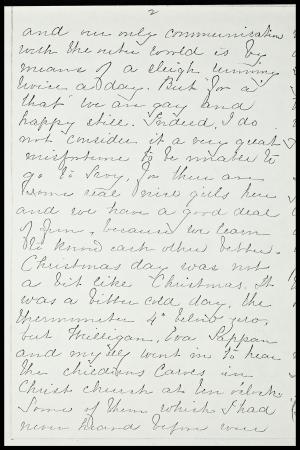 2
and our only communication
with the outer world is by
means of a sleigh running
twice a day. But for a'
that we are gay and
happy still. Indeed, I do
not consider it a very great
misfortune to be unable to
go to Savy, for there are
some real nice girls here
and we have a good deal
of fun, because we learn
to know each other better.
Christmas day was not
a bit like Christmas. It
was a bitter cold day, the
thermometer 4° below zero,
but Hilligan, Eva Sappan
and myself went in to hear
the childrens Carols in
Christ church at ten o'clock.
Some of them which I had
never heard before were